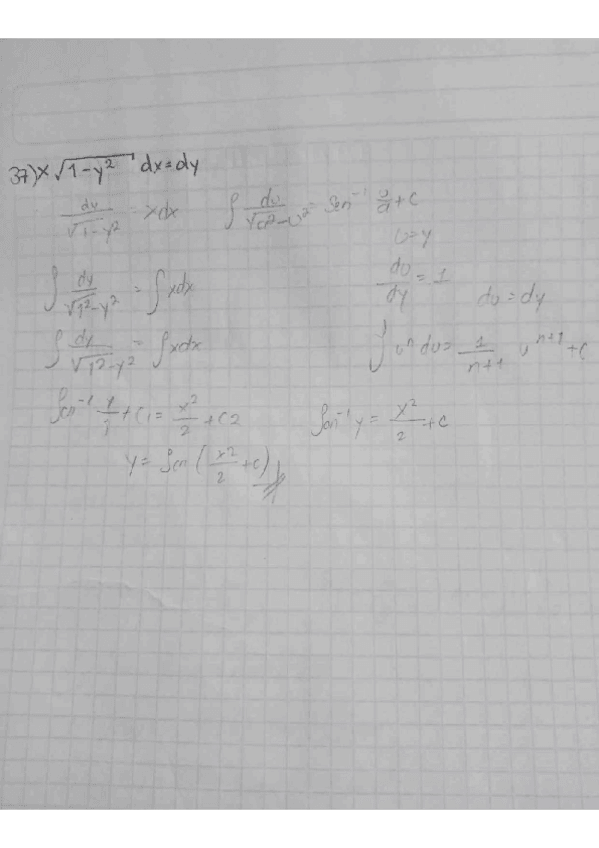 37) x √(1-y²) dx = dy
dy/√(1-y²) = xdx    ∫ du/√(a²-u²) = Sen⁻¹ u/a + c
u = y
∫ dy/√(1²-y²) = ∫ xdx    du/dy = 1    du = dy
∫ dy/√(1²-y²) = ∫ xdx    ∫ uⁿ du = 1/(n+1) uⁿ⁺¹ + c
Sen⁻¹ y/1 + C1 = x²/2 + C2    Sen⁻¹ y = x²/2 + c
y = Sen (x²/2 + c)